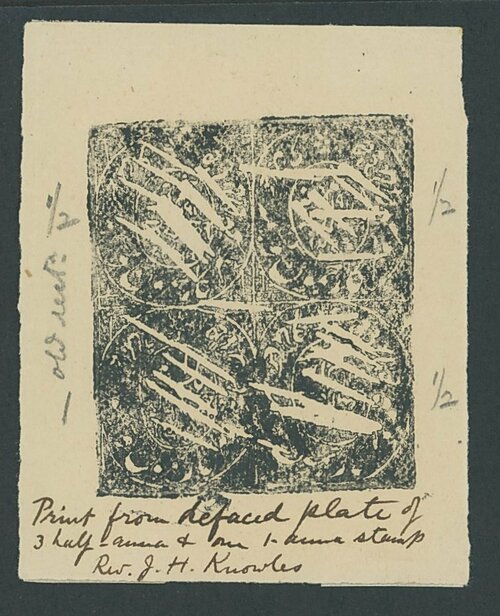 ½
½
½
— old rect:
Print from defaced plate of
3 half-anna & one 1-anna stamp
Rev. J. H. Knowles